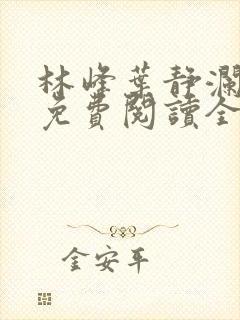 林峰葉静瀾
免費閱讀全
金安平